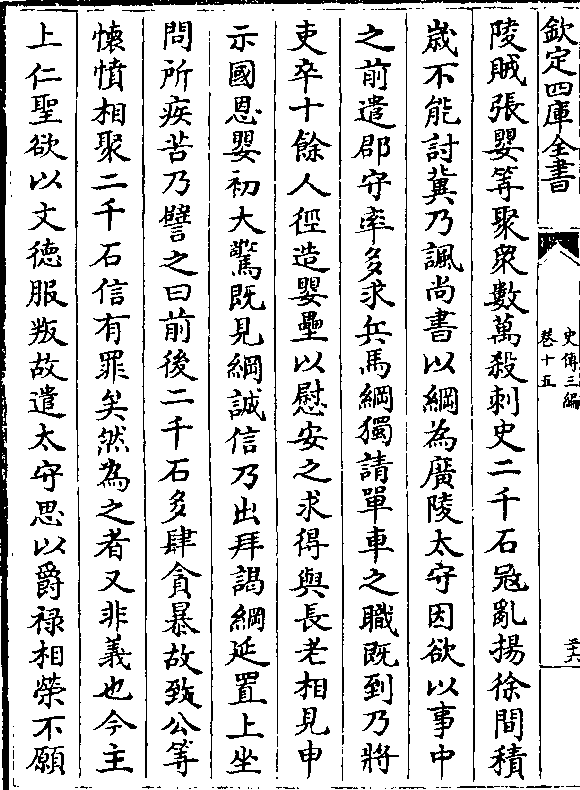 欽定四庫全書
史傳三編
卷十五
三六
陵賊張嬰等聚衆數萬殺刺史二千石冦亂揚徐間積
嵗不能討冀乃諷尚書以綱為廣陵太守因欲以事中
之前遣郡守率多求兵馬綱獨請單車之職既到乃將
吏卒十餘人徑造嬰壘以慰安之求得與長老相見申
示國恩嬰初大驚既見綱誠信乃出拜謁綱延置上坐
問所疾苦乃譬之曰前後二千石多肆貪暴故致公等
懐憤相聚二千石信有罪矣然為之者又非義也今主
上仁聖欲以文徳服叛故遣太守思以爵禄相榮不願